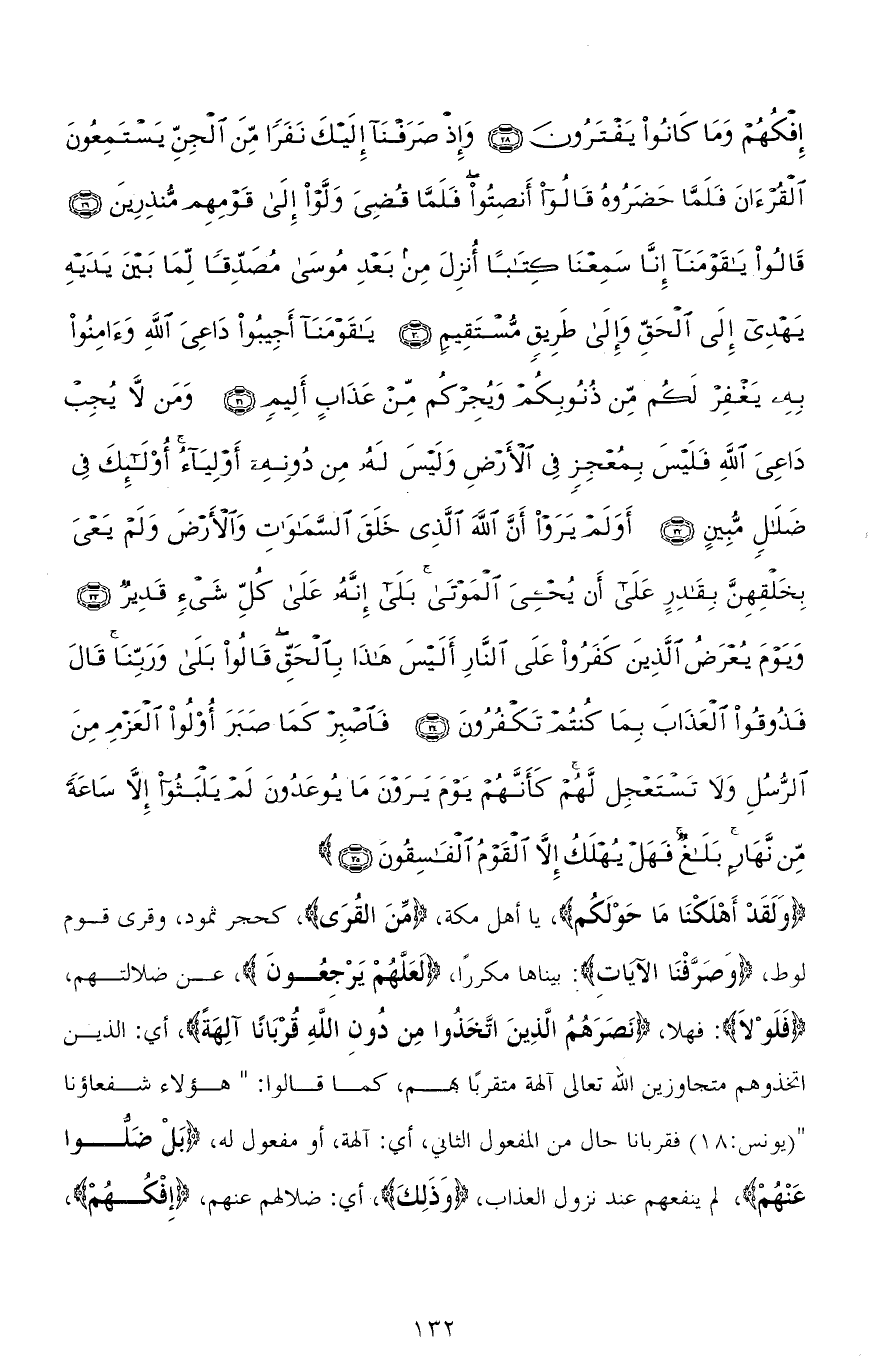 إِفْكُهُمْ وَمَا كَانُوا۟ يَفْتَرُونَ ﴿٢٨﴾ وَإِذْ صَرَفْنَآ إِلَيْكَ نَفَرًا مِّنَ ٱلْجِنِّ يَسْتَمِعُونَ
ٱلْقُرْءَانَ فَلَمَّا حَضَرُوهُ قَالُوٓا۟ أَنصِتُوا۟ ۖ فَلَمَّا قُضِىَ وَلَّوْا۟ إِلَىٰ قَوْمِهِم مُّنذِرِينَ ﴿٢٩﴾
قَالُوا۟ يَٰقَوْمَنَآ إِنَّا سَمِعْنَا كِتَٰبًا أُنزِلَ مِنۢ بَعْدِ مُوسَىٰ مُصَدِّقًا لِّمَا بَيْنَ يَدَيْهِ
يَهْدِىٓ إِلَى ٱلْحَقِّ وَإِلَىٰ طَرِيقٍ مُّسْتَقِيمٍ ﴿٣٠﴾ يَٰقَوْمَنَآ أَجِيبُوا۟ دَاعِىَ ٱللَّهِ وَءَامِنُوا۟
بِهِۦ يَغْفِرْ لَكُم مِّن ذُنُوبِكُمْ وَيُجِرْكُم مِّنْ عَذَابٍ أَلِيمٍ ﴿٣١﴾ وَمَن لَّا يُجِبْ
دَاعِىَ ٱللَّهِ فَلَيْسَ بِمُعْجِزٍ فِى ٱلْأَرْضِ وَلَيْسَ لَهُۥ مِن دُونِهِۦٓ أَوْلِيَآءُ ۚ أُو۟لَٰٓئِكَ فِى
ضَلَٰلٍ مُّبِينٍ ﴿٣٢﴾ أَوَلَمْ يَرَوْا۟ أَنَّ ٱللَّهَ ٱلَّذِى خَلَقَ ٱلسَّمَٰوَٰتِ وَٱلْأَرْضَ وَلَمْ يَعْىَ
بِخَلْقِهِنَّ بِقَٰدِرٍ عَلَىٰٓ أَن يُحْـِۧىَ ٱلْمَوْتَىٰ ۚ بَلَىٰٓ إِنَّهُۥ عَلَىٰ كُلِّ شَىْءٍ قَدِيرٌ ﴿٣٣﴾
وَيَوْمَ يُعْرَضُ ٱلَّذِينَ كَفَرُوا۟ عَلَى ٱلنَّارِ أَلَيْسَ هَٰذَا بِٱلْحَقِّ ۖ قَالُوا۟ بَلَىٰ وَرَبِّنَا ۚ قَالَ
فَذُوقُوا۟ ٱلْعَذَابَ بِمَا كُنتُمْ تَكْفُرُونَ ﴿٣٤﴾ فَٱصْبِرْ كَمَا صَبَرَ أُو۟لُوا۟ ٱلْعَزْمِ مِنَ
ٱلرُّسُلِ وَلَا تَسْتَعْجِل لَّهُمْ ۚ كَأَنَّهُمْ يَوْمَ يَرَوْنَ مَا يُوعَدُونَ لَمْ يَلْبَثُوٓا۟ إِلَّا سَاعَةً
مِّن نَّهَارٍۭ ۚ بَلَٰغٌ ۚ فَهَلْ يُهْلَكُ إِلَّا ٱلْقَوْمُ ٱلْفَٰسِقُونَ ﴿٣٥﴾ ﴾
﴿وَلَقَدْ أَهْلَكْنَا مَا حَوْلَكُم﴾، يا أهل مكة، ﴿مِّنَ القُرَى﴾، كحجر ثمود، وقرى قوم
لوط، ﴿وَصَرَّفْنَا الآيَاتِ﴾: بيناها مكررًا، ﴿لَعَلَّهُمْ يَرْجِعُونَ ﴾، عن ضلالتهم،
﴿فَلَوْلاَ﴾: فهلا، ﴿نَصَرَهُمُ الَّذِينَ اتَّخَذُوا مِن دُونِ اللَّهِ قُرْبَانًا آلِهَةً﴾، أي: الذين
اتخذوهم متجاوزين الله تعالى آلهة متقربًا بهم، كما قالوا: " هؤلاء شفعاؤنا
"(يونس:١٨) فقربانا حال من المفعول الثاني، أي: آلهة، أو مفعول له، ﴿بَلْ ضَلُّوا
عَنْهُمْ﴾، لم ينفعهم عند نزول العذاب، ﴿وَذَلِكَ﴾، أي: ضلالهم عنهم، ﴿إِفْكُهُمْ﴾،
١٣٢